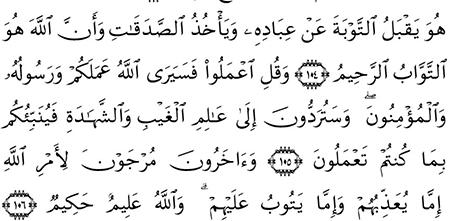 هُوَ يَقْبَلُ ٱلتَّوْبَةَ عَنْ عِبَادِهِۦ وَيَأْخُذُ ٱلصَّدَقَـٰتِ وَأَنَّ ٱللَّهَ هُوَ
ٱلتَّوَّابُ ٱلرَّحِيمُ ﴿١٠٤﴾ وَقُلِ ٱعْمَلُوا۟ فَسَيَرَى ٱللَّهُ عَمَلَكُمْ وَرَسُولُهُۥ
وَٱلْمُؤْمِنُونَ ۖ وَسَتُرَدُّونَ إِلَىٰ عَـٰلِمِ ٱلْغَيْبِ وَٱلشَّهَـٰدَةِ فَيُنَبِّئُكُم
بِمَا كُنتُمْ تَعْمَلُونَ ﴿١٠٥﴾ وَءَاخَرُونَ مُرْجَوْنَ لِأَمْرِ ٱللَّهِ
إِمَّا يُعَذِّبُهُمْ وَإِمَّا يَتُوبُ عَلَيْهِمْ ۗ وَٱللَّهُ عَلِيمٌ حَكِيمٌ ﴿١٠٦﴾